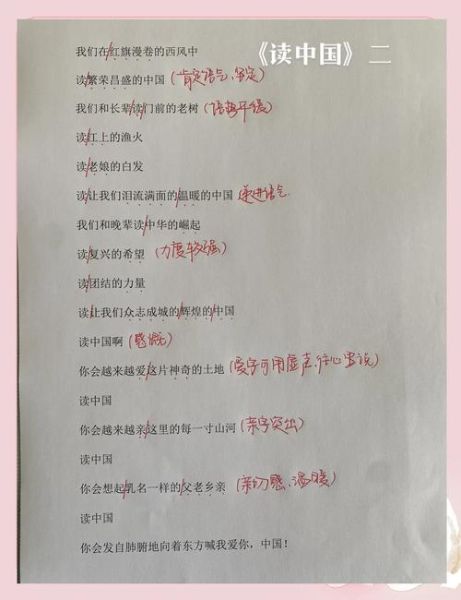 《读中国》二
我们在红旗漫卷的西风中
读繁荣昌盛的中国（肯定语气、坚定）
我们和长辈读门前的老树（语势平缓）
读江上的渔火
读老娘的白发
读让我们泪流满面的温暖的中国 递进语气
我们和晚辈读中华的崛起
读复兴的希望（力度较强）
读团结的力量
读让我们众志成城的辉煌的中国
读中国啊（感慨）
你会越来越爱这片神奇的土地（爱字可用虚声，往心里说）
读中国
你会越来越亲这里的每一寸山河（亲字突出）
读中国
你会想起乳名一样的父老乡亲（亲切感、温暖）
读中国
你会发自肺腑地向着东方喊我爱你，中国！